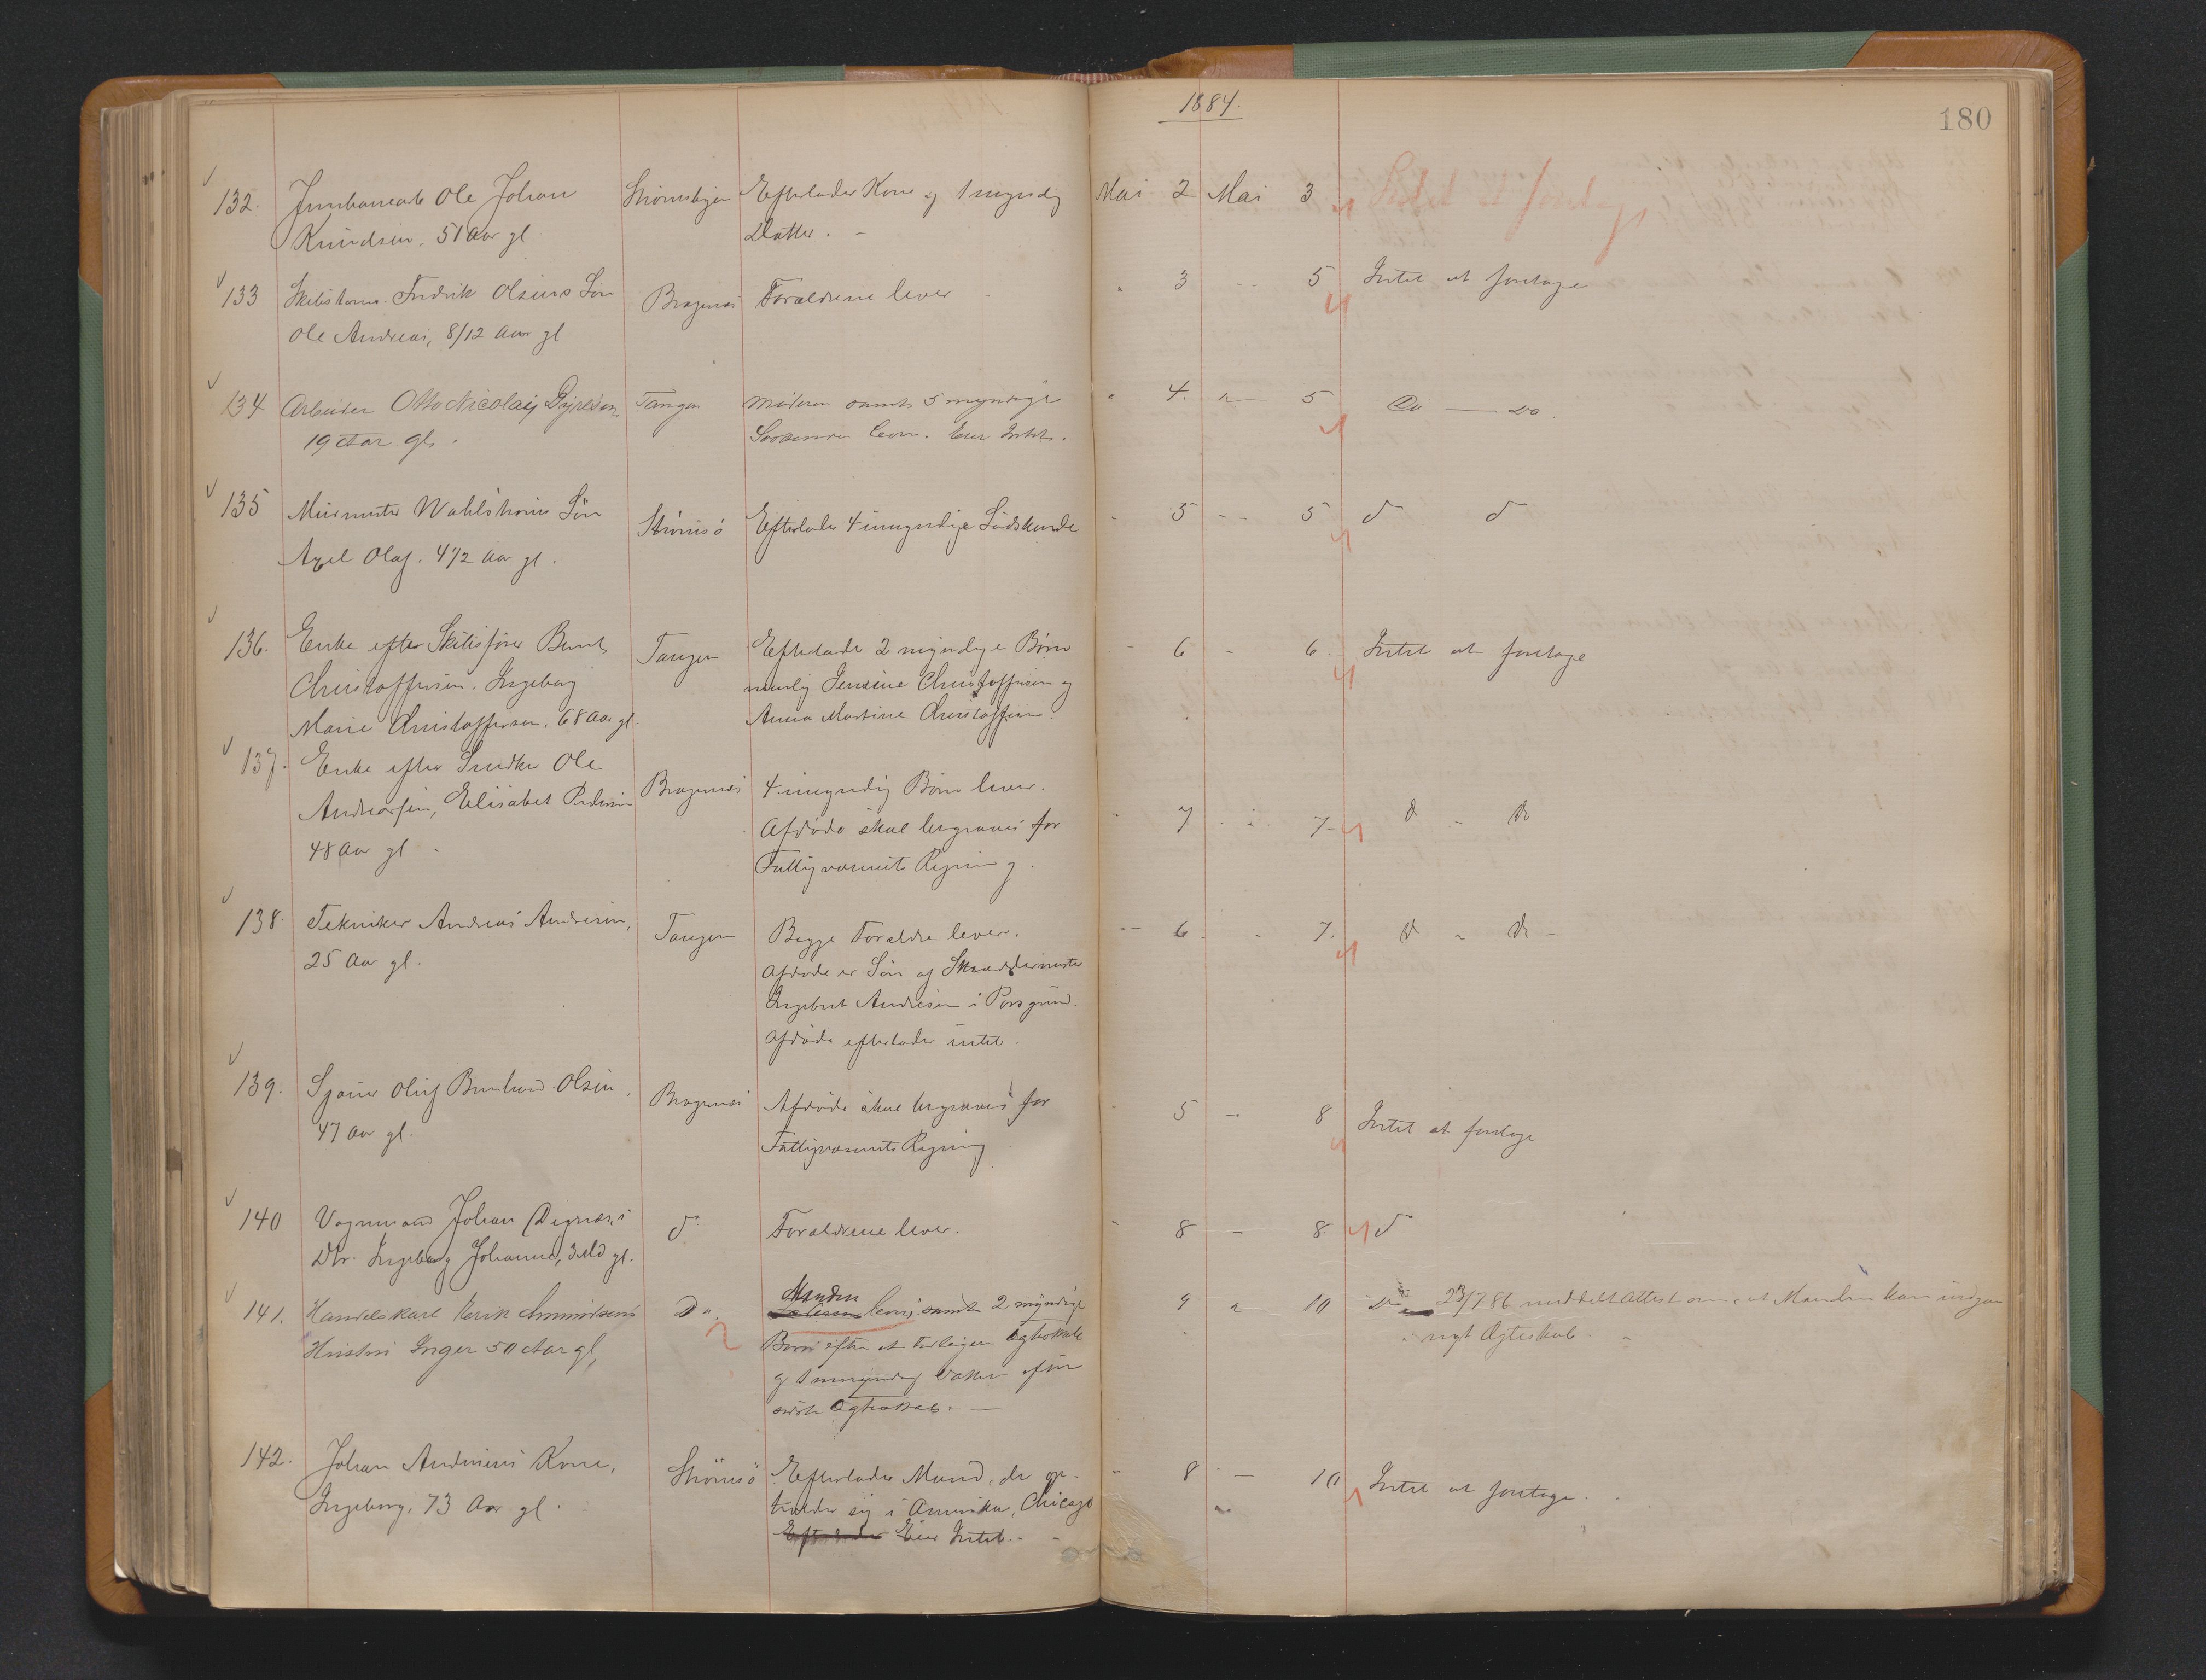 1884.
180
132. Ole Johan Strømsbygn Efterlader Kone og 1 myndig Mai 2 Mai 3 Intet at foretage
Knudsen, 51 Aar gl Datter. -
133 Fredrik Olsens Søn Bragernæs Forældrene lever 3 5 Intet at foretage
Ole Andreas, 8/12 Aar gl
134 Arbeider Otto Nicolay Tangen Moderen samt 5 myndige " 4. " 5 Do — Do.
19 Aar gl. Sødskende lever. Eier Intet.
135 Murmester Wahlstrøms Søn Strømsø Efterlader 4 umyndige Sødskende - 5 - - 5 d d
Axel Olaf. 4 1/2 Aar gl.
136. Enke efter Skibsfører Bernt Tangen Efterlader 2 myndige Børn - 6 - 6. Intet at foretage
Christoffersen. Ingeborg nemlig Christoffersen og
Marie Christoffersen, 68 Aar gl. Anna Martine Christoffersen.
137. Enke efter Snedker Ole Bragernæs 4 umyndig Børn lever. - 7 - 7 - d - do
Andreassen, Elisabet Pedersen Afdøde skal begraves for
48 Aar gl. Fattigvæsenets Regning.
138. Tekniker Andreas Andresen, Tangen Begge Forældre lever. -- 6 - 7. d - do -
25 Aar gl. Afdøde er Søn af Skræddermester
Ingebret Andresen i Porsgrund.
Afdøde efterlader intet.
139. Oluf Bernhard Olsen, Bragernæs Afdøde skal begraves for - 5 - 8 Intet at foretage
47 Aar gl. Fattigvæsenets Regning
140 Vognmand Johan d. Forældrene lever. - 8 - 8. d
Dtr. Ingeborg Johanne, 3 Md gl.
141. Handelskarl Do. Manden lever, samt 2 myndige 9 " 10 Do 23/7 86 meddelt Attest om, at Manden kan indgaa
Hustru Inger 50 Aar gl, Børn efter et tidligere Ægteskab i nyt Ægteskab. -
og 1 umyndig Datter efter
sidste Ægteskab. —
142. Johan Andersens Kone, Strømsø Efterlader Mand, der op- - 8 - 10 Intet at foretage.
Ingeborg, 73 Aar gl. holder sig i Amerika, Chicago
Efterlader Eier Intet. -